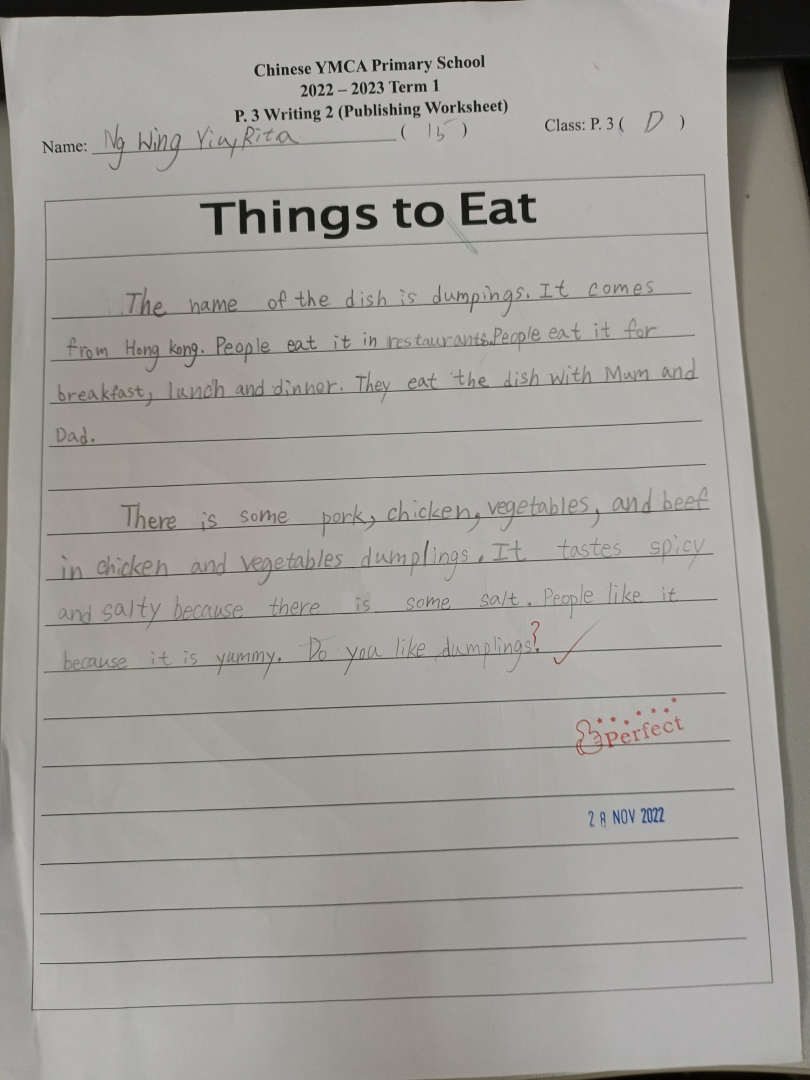 Chinese YMCA Primary School
2022 – 2023 Term 1
P. 3 Writing 2 (Publishing Worksheet)
Name: Ng Wing Yiu, Rita ( 15 ) Class: P. 3 ( D )
Things to Eat
The name of the dish is dumpings. It comes
from Hong kong. People eat it in restaurants. People eat it for
breakfast, lunch and dinner. They eat the dish with Mum and
Dad.
There is some pork, chicken, vegetables, and beef
in chicken and vegetables dumplings. It tastes spicy
and salty because there is some salt. People like it
because it is yummy. Do you like dumplings?
Perfect
28 NOV 2022